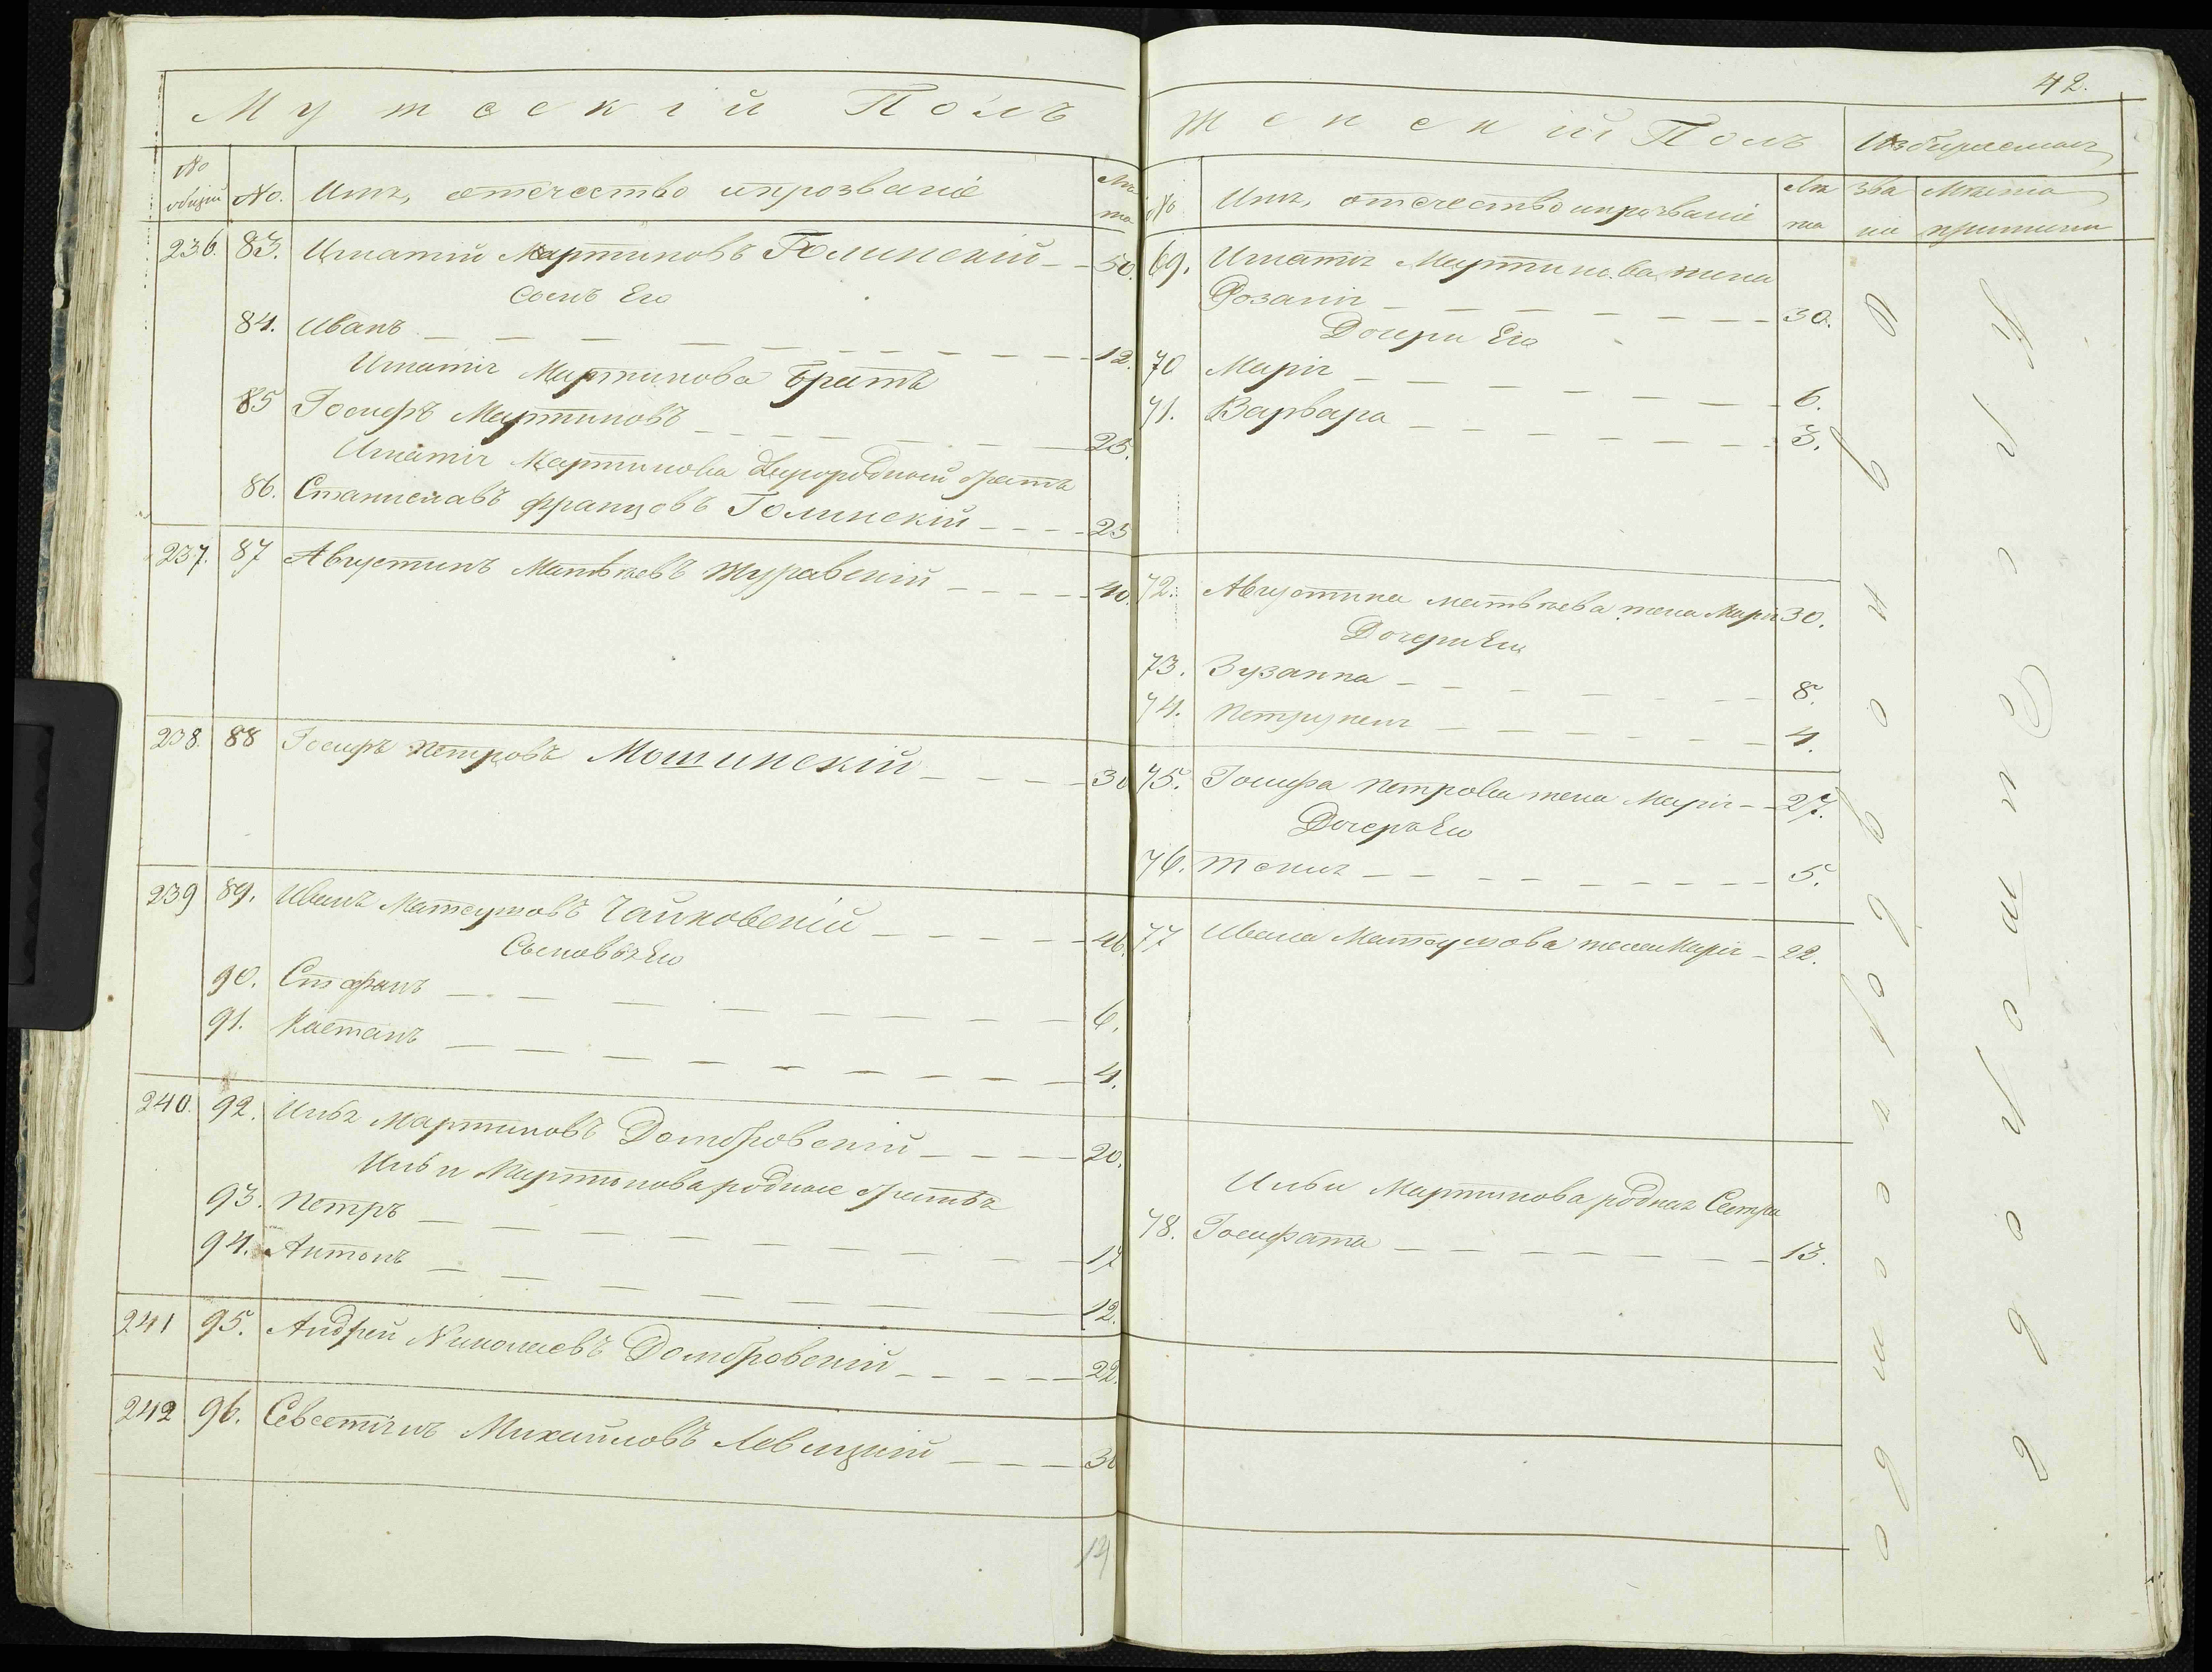 Мужескій Полъ
№ общій
No.
Имя, отечество и прозваніе
Лѣта
236. 83. Игнатій Мартиновъ Голинскій 50.
Сынъ Его
84. Иванъ 12.
Игнатія Мартинова Братъ
85 Іосифъ Мартиновъ 25.
Игнатія Мартинова двуюродный братъ
86. Станиславъ Францовъ Голинскій 25
237. 87 Августинъ Матвѣевъ Журавскій 40.
238. 88 Іосифъ Петровъ Мошинскій 30
239 89. Иванъ Матеушовъ Чайковскій 46.
Сыновья Его
90. Стефанъ 6.
91. Каетанъ 4.
240. 92. Илья Мартиновъ Домбровскій 20.
Ильи Мартинова родные братья
93. Петръ 17
94. Антонъ 12.
241 95. Андрей Николаевъ Домбровскій 22.
242 96. Севестіянъ Михайловъ Левицкій 30
14
42.
Женскій Полъ
Избираемыя
№
Имя, отечество и прозваніе
Лѣта
званія
Мѣста
приписки
69. Игнатія Мартинова жена
Розалія 30.
Дочери Его
70 Марія 6.
71. Варвара 3.
72. Августина Матвѣева жена Марія 30.
Дочери Его
73. Зузанна 8.
74. Петрунеля 4.
75. Іосифа Петрова жена Марія 27.
Дочерь Его
76. Текля 5.
77 Ивана Матеушова жена Марія 22.
Ильи Мартинова родная Сестра
78. Іосифата 13.